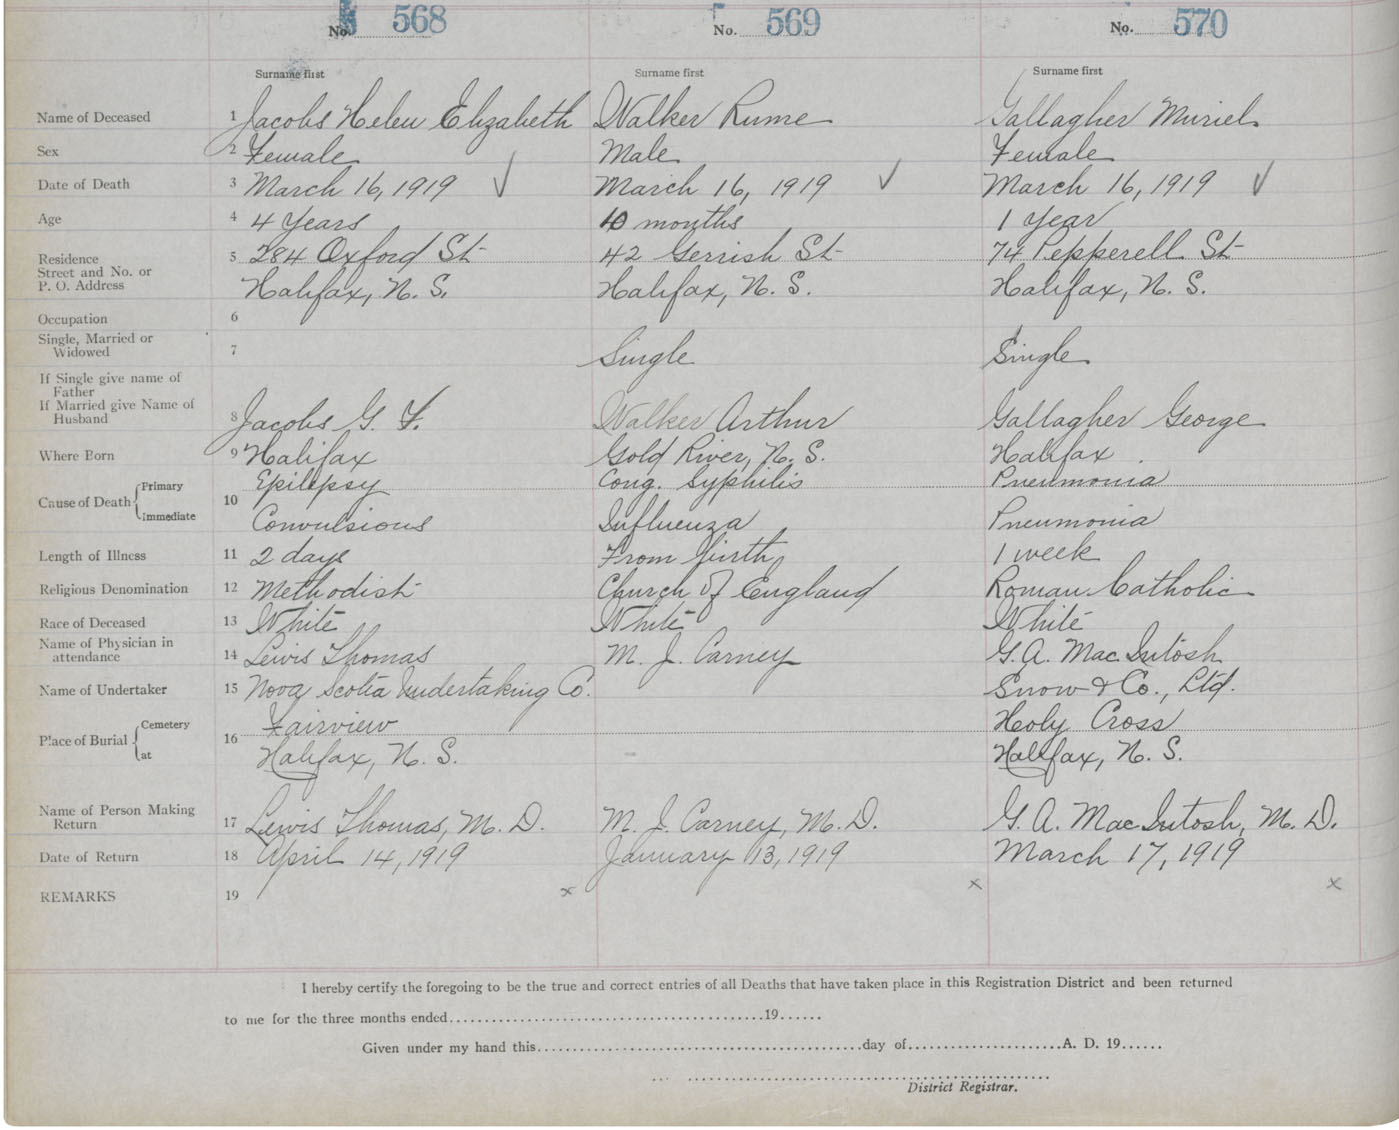 No. 568 No. 569 No. 570
Surname first Surname first Surname first
Name of Deceased 1 Jacobs Helen Elizabeth Walker Rume Gallagher Muriel
Sex 2 Female Male Female
Date of Death 3 March 16, 1919 March 16, 1919 March 16, 1919
Age 4 4 Years 10 months 1 Year
Residence 5 284 Oxford St 42 Gerrish St 74 Pepperell St
Street and No. or
P. O. Address Halifax, N. S. Halifax, N. S. Halifax, N. S.
Occupation 6
Single, Married or
Widowed 7 Single Single
If Single give name of
Father
If Married give Name of
Husband 8 Jacobs G. F. Walker Arthur Gallagher George
Where Born 9 Halifax Gold River, N. S. Halifax
Cause of Death Primary 10 Epilepsy Cong. Syphilis Pneumonia
Immediate Convulsions Influenza Pneumonia
Length of Illness 11 2 days From birth 1 week
Religious Denomination 12 Methodist Church of England Roman Catholic
Race of Deceased 13 White White White
Name of Physician in
attendance 14 Lewis Thomas M. J. Carney G. A. MacIntosh
Name of Undertaker 15 Nova Scotia Undertaking Co. Snow & Co., Ltd.
Place of Burial Cemetery 16 Fairview Holy Cross
at Halifax, N. S. Halifax, N. S.
Name of Person Making
Return 17 Lewis Thomas, M. D. M. J. Carney, M. D. G. A. MacIntosh, M. D.
Date of Return 18 April 14, 1919 January 13, 1919 March 17, 1919
REMARKS 19 x x x
I hereby certify the foregoing to be the true and correct entries of all Deaths that have taken place in this Registration District and been returned
to me for the three months ended..........19......
Given under my hand this..........day of..........A. D. 19......
District Registrar.